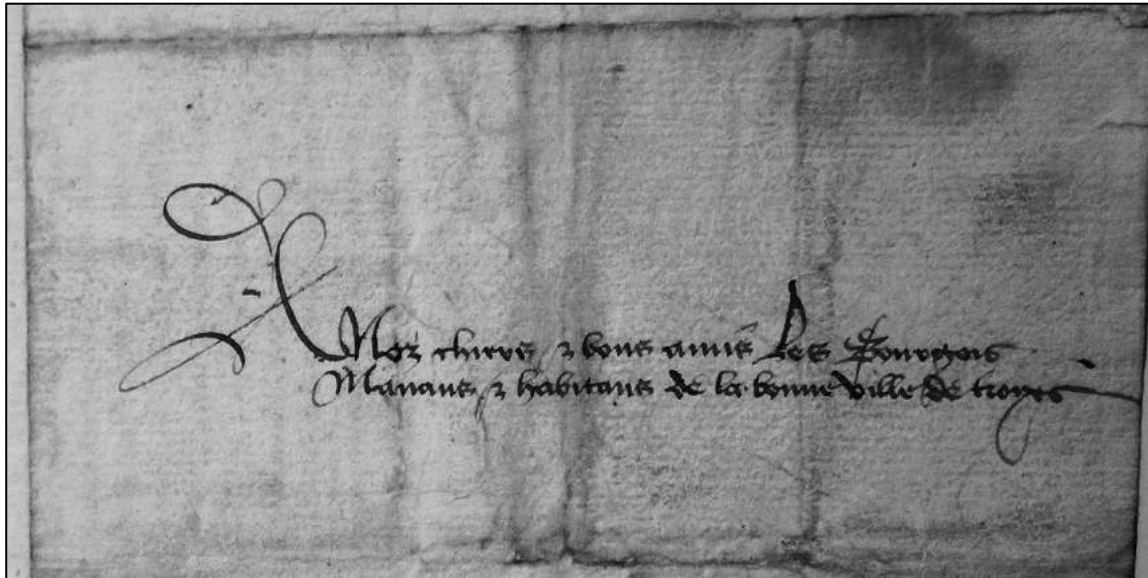 A Noz chiers & bons amis les Bourgois
Manans & habitans de la bonne ville de troyes